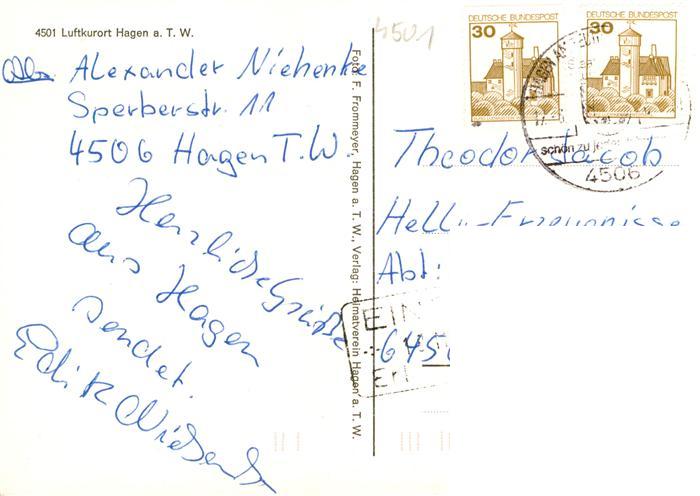 4501 Luftkurort Hagen a. T. W.
Alexander Niehenke
Sperberstr. 11
4506 Hagen T.W.
Herzliche Grüße
aus Hagen
sendet
Foto: F. Frommeyer, Hagen a. T. W., Verlag: Heimatverein Hagen a. T. W.
4501
DEUTSCHE BUNDESPOST
30
DEUTSCHE BUNDESPOST
30
schön zu
4506
Theodor Jacob
Abt:
EIN